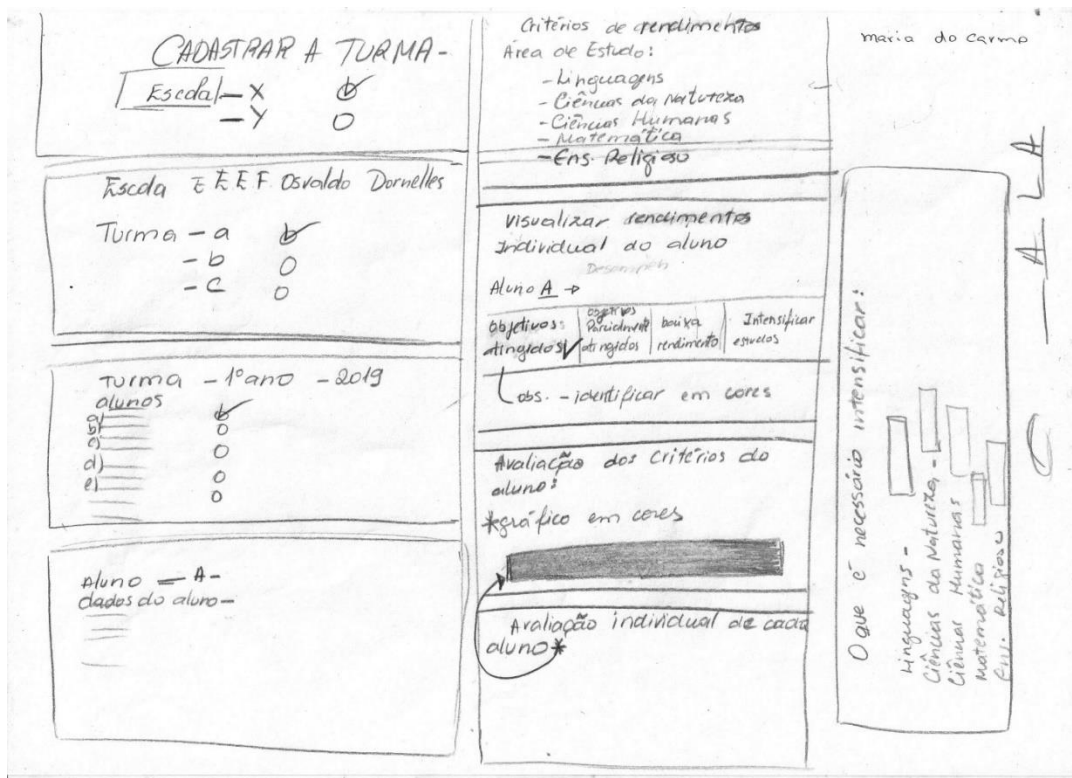 CADASTRAR A TURMA -
Escola - X
- Y
Escola E E E F. Osvaldo Dornelles
Turma - a
- b
- c
Turma - 1º ano - 2019
alunos
a)
b)
c)
d)
e)
Aluno - A -
dados do aluno -
Critérios de rendimentos
Área de Estudo:
- Linguagens
- Ciências da Natureza
- Ciências Humanas
- Matemática
- Ens. Religioso
Visualizar rendimentos
Individual do aluno
Desempenh
Aluno A →
Objetivos atingidos ✓
Objetivos Parcialment atingidos
baixa rendimento
Intensificar estudos
obs. - identificar em cores
Avaliação dos critérios do
aluno:
*gráfico em cores
Avaliação individual de cada
aluno*
maria do carmo
O que é necessário intensificar:
Linguagens -
Ciências da Natureza -
Ciências Humanas
Matemática
Ens. Religioso
A - LA